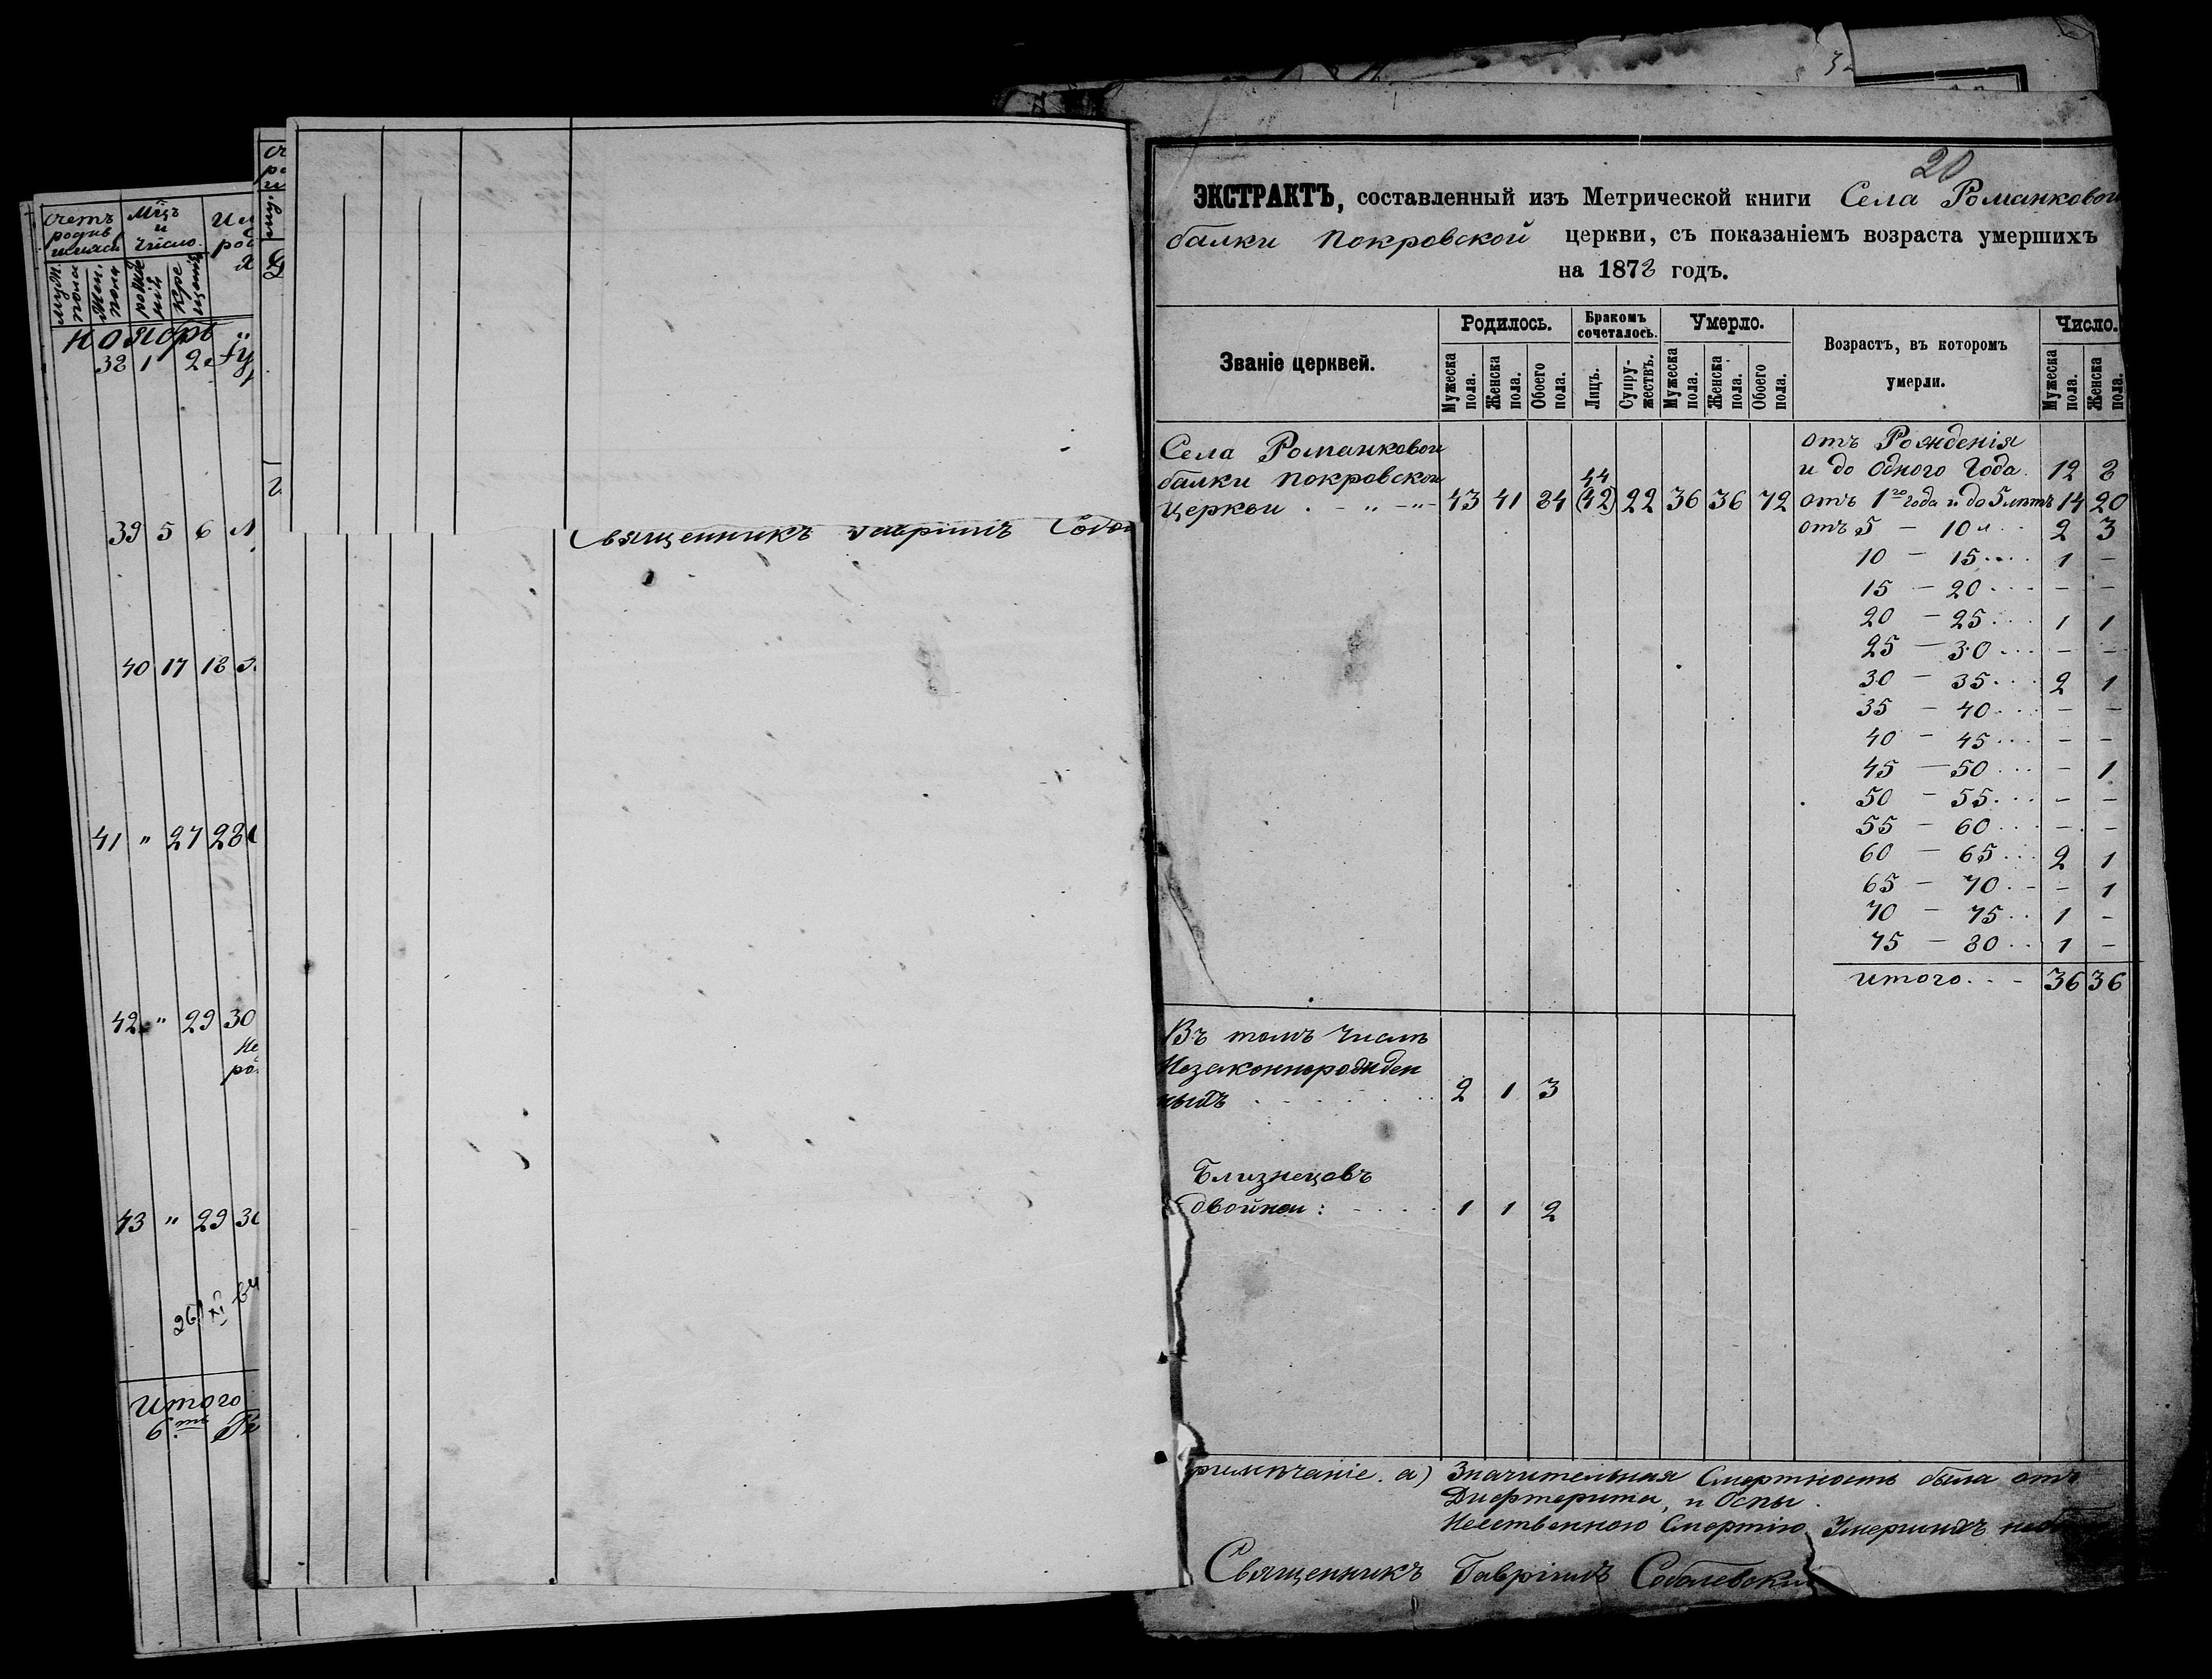 счетъ
родив
шихся
Мцъ
и
число
муж. пола
жен. пола
рожде нія
кре щенія
Ноябрь
38 1 2
39 5 6
40 17 18
41 " 27 28
42 " 29 30
43 " 29 30
Итого
Священникъ Гавріилъ
20
ЭКСТРАКТЪ, составленный изъ Метрической книги Села Романковой
балки Покровской церкви, съ показаніемъ возраста умершихъ
на 1878 годъ.
Званіе церквей.
Родилось.
Бракомъ сочеталось.
Умерло.
Возрастъ, въ которомъ
умерли.
Число.
Мужеска пола.
Женска пола.
Обоего пола.
Лицъ.
Супру-жествъ.
Мужеска пола.
Женска пола.
Обоего пола.
Мужеска пола.
Женска пола.
Села Романковой
балки Покровской
Церкви . - „ - „ - 43 41 84 44 (42) 22 36 36 72
отъ Рожденія
и до Одного Года. 12 8
отъ 1го года и до 5 лѣтъ 14 20
отъ 5 — 10 л. . 2 3
10 — 15 . . . . 1 —
15 — 20 . . . — —
20 — 25 . . . 1 1
25 — 30 . . . — —
30 — 35 . . . 2 1
35 — 40 . . . — —
40 — 45 . . . — —
45 — 50 . . . — 1
50 — 55 . . . — —
55 — 60 . . . — —
60 — 65 . . . 2 1
65 — 70 . . — 1
70 — 75 . . 1 —
75 — 80 . . 1 —
Итого . . - 36 36
Въ томъ Числѣ
Незаконнорожден
ныхъ . - - - - . . 2 1 3
Близнецовъ
двойни : - . . . 1 1 2
римѣчаніе. а) Значительная Смертность была отъ
Дифтерита, и Оспы.
Неественною Смертію Умершихъ
Священникъ Гавріилъ Соболевскій